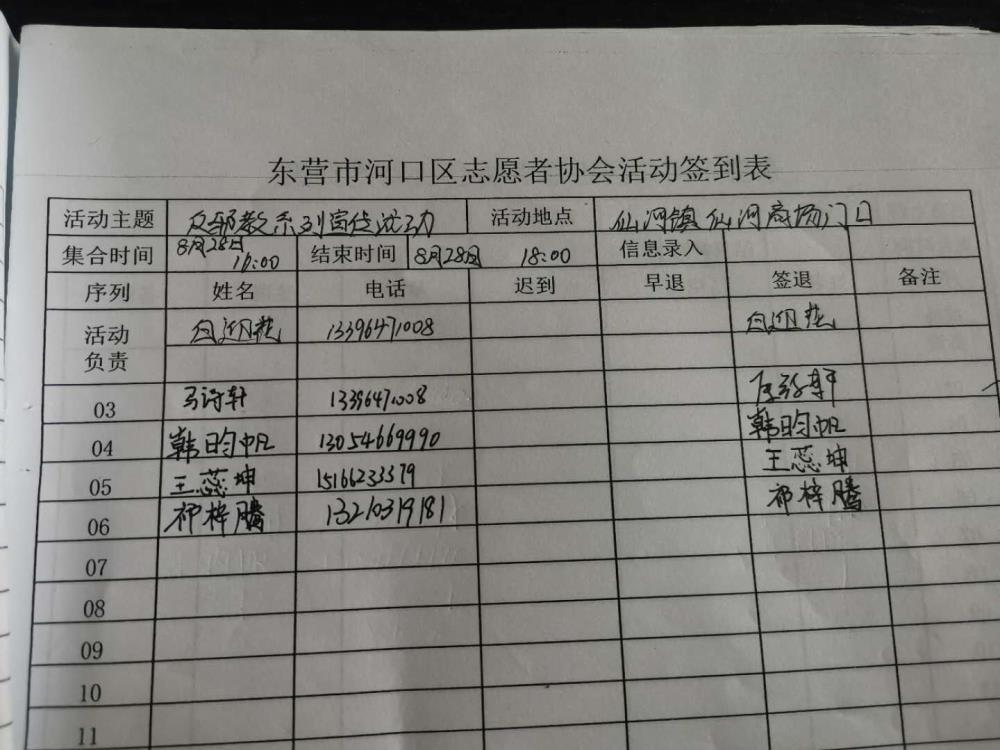 东营市河口区志愿者协会活动签到表
活动主题 反邪教系列宣传活动 活动地点 仙河镇仙河商场门口
集合时间 8月28日 17:00 结束时间 8月28日 18:00 信息录入
序列 姓名 电话 迟到 早退 签退 备注
活动负责 13396471008
03 马诗轩 13396471008
04 韩昀帆 13054669990 韩昀帆
05 王蕊坤 15166233379 王蕊坤
06 祁梓腾 13210319181 祁梓腾
07
08
09
10
11